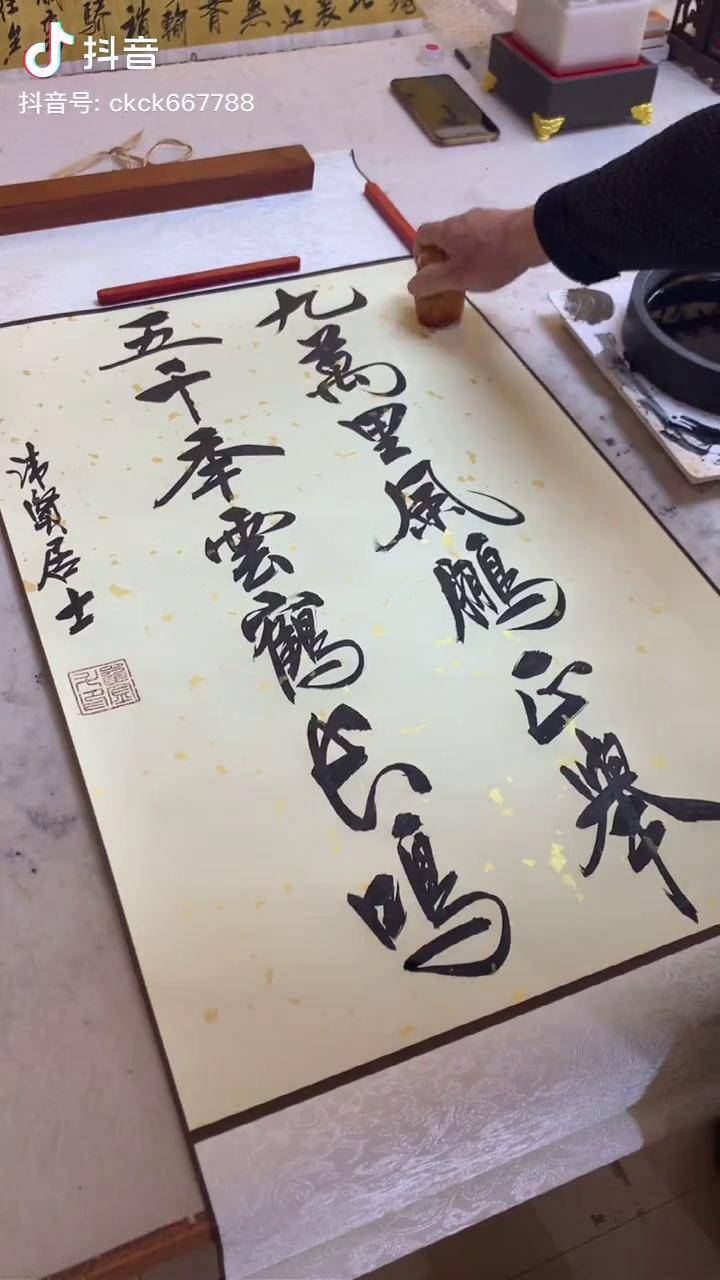 抖音
抖音号: ckck667788
九萬里風鵬正舉
五千年雲鶴長鳴
沛賢居士